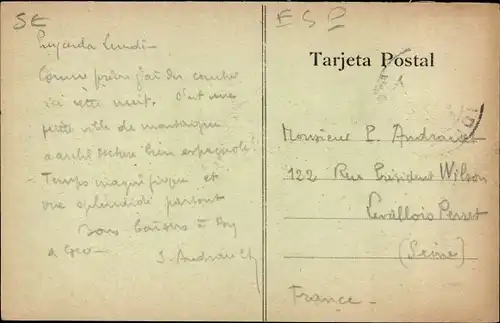 SE
Puycerda Lundi -
Comme prévu j'ai du coucher
ici cette nuit. C'est une
petite ville de montagne
a architecture bien espagnole!
Temps magnifique et
vue splendide partout
Bons baisers à
a Geo
J. Andrault
ESP
Tarjeta Postal
Monsieur P. Andrault
122 Rue Président Wilson
Levallois Perret
(Seine)
France -